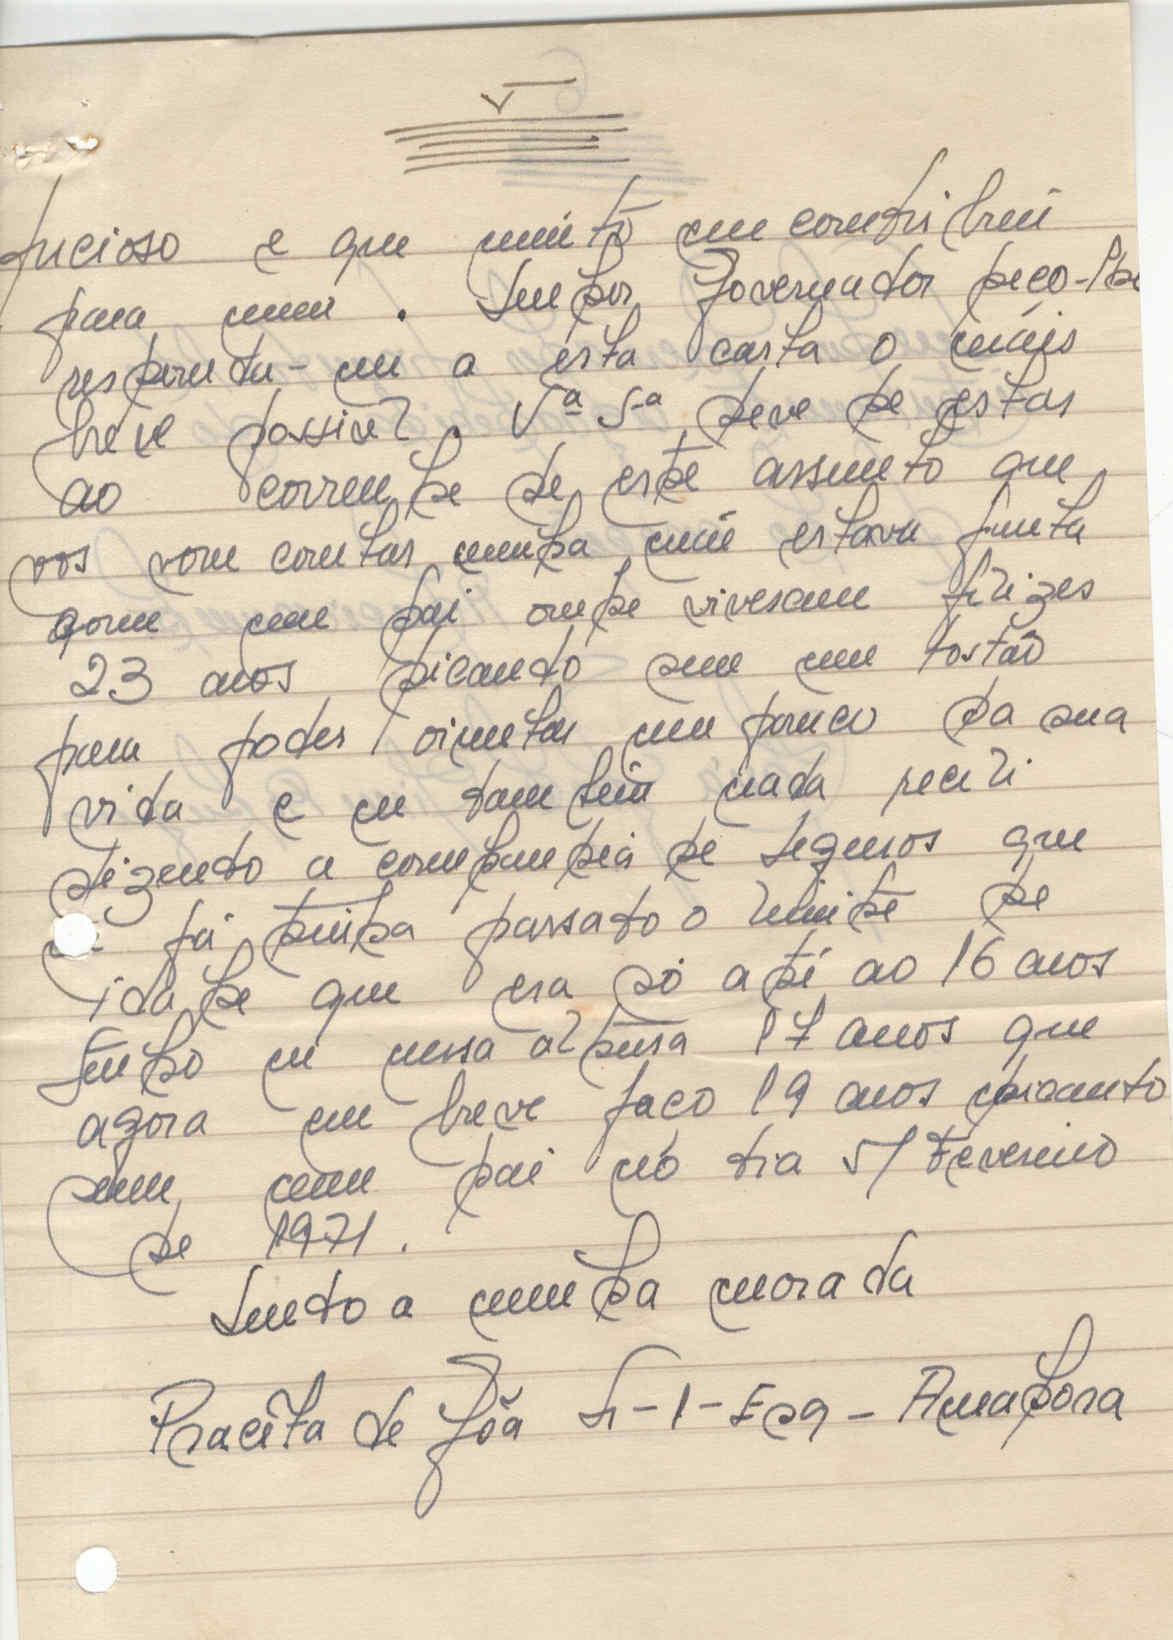 V
e que muito me contribui
para mim. Senhor Governador peço-lhe
responda-me a esta carta o mais
breve possivel. Vª Sª deve de estar
ao corrente de este assunto que
vos vou contar minha mãi estava junta
com meu pai onde viveram felizes
23 anos ficando sem um tostão
para poder orientar um pouco da sua
vida e eu tambem nada recebi
dizendo a companhia de Seguros que
já tinha passado o limite de
idade que era só até ao 16 anos
Tenho eu nessa altura 17 anos que
agora em breve faço 19 anos ficando
sem meu pai no dia 5/ Fevereiro
de 1971.
Sendo a minha morada
Praceta de Goa Lt-1-Esq - Amadora